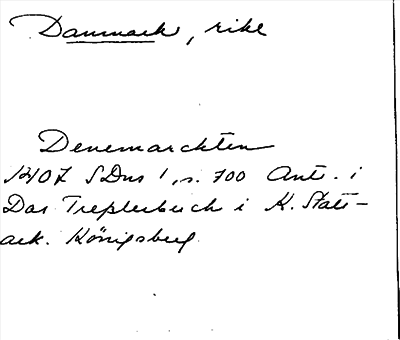 Danmark, rike
Denemarckten
1407 SDns 1, s. 700 Ant. i
Das Treslerbuch i K. Stats-
ark. Königsberg